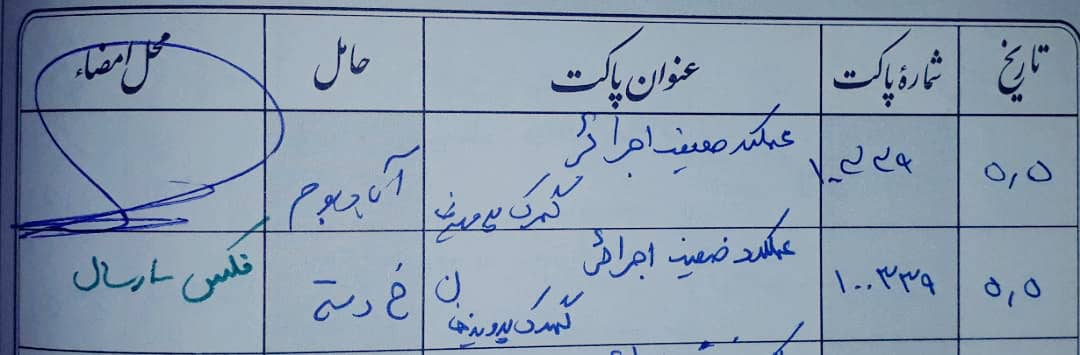 تاریخ شمارهٔ پاکت عنوان پاکت حامل محل امضاء
۵ر۵ ۱۰۰۳۳۹ عملکرد ضعیف اجرائی
گمرک آقای
۵ر۵ ۱۰۰۳۳۹ عملکرد ضعیف اجرائی
گمرک پرویزخان خ دستی فکس ارسال